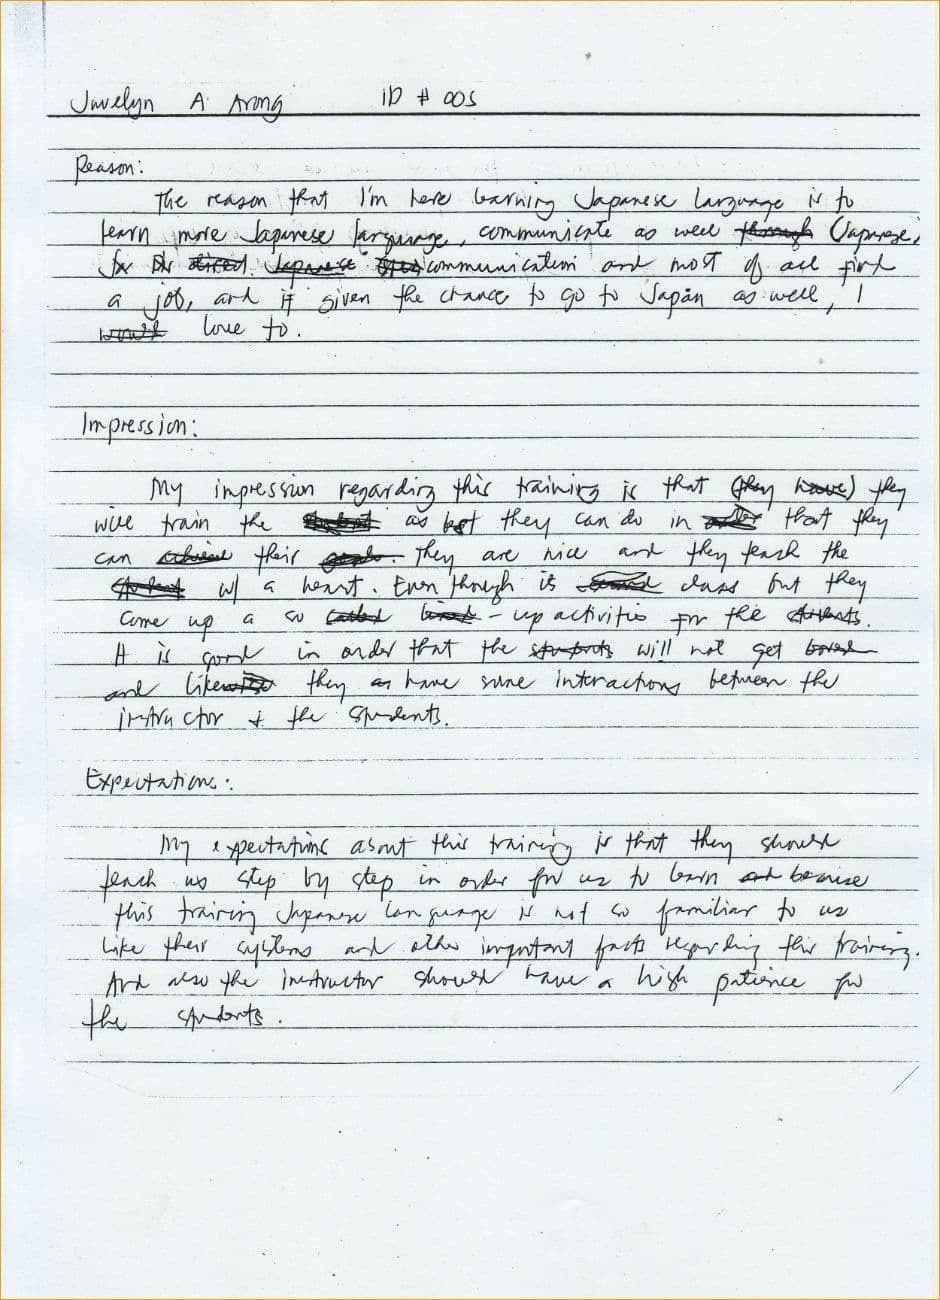 Juvelyn A. Arong ID # 005
Reason:
The reason that I'm here learning Japanese language is to
learn more Japanese language, communicate as well through Japanese,
for direct Japanese communication and most of all find
a job, and if given the chance to go to Japan as well, I
would love to.
Impression:
My impression regarding this training is that (they have) they
will train the student as best they can do in order that they
can achieve their goals. They are nice and they teach the
student w/ a heart. Even though is class but they
come up a so called - up activities for the students.
It is good in order that the students will not get bored
and likewise they as have some interactions between the
instructor & the students.
Expectations:
My expectations about this training is that they should
teach us step by step in order for us to learn and because
this training Japanese language is not so familiar to us
like their systems and other important facts regarding this training.
And also the instructor should have a high patience for
the students.